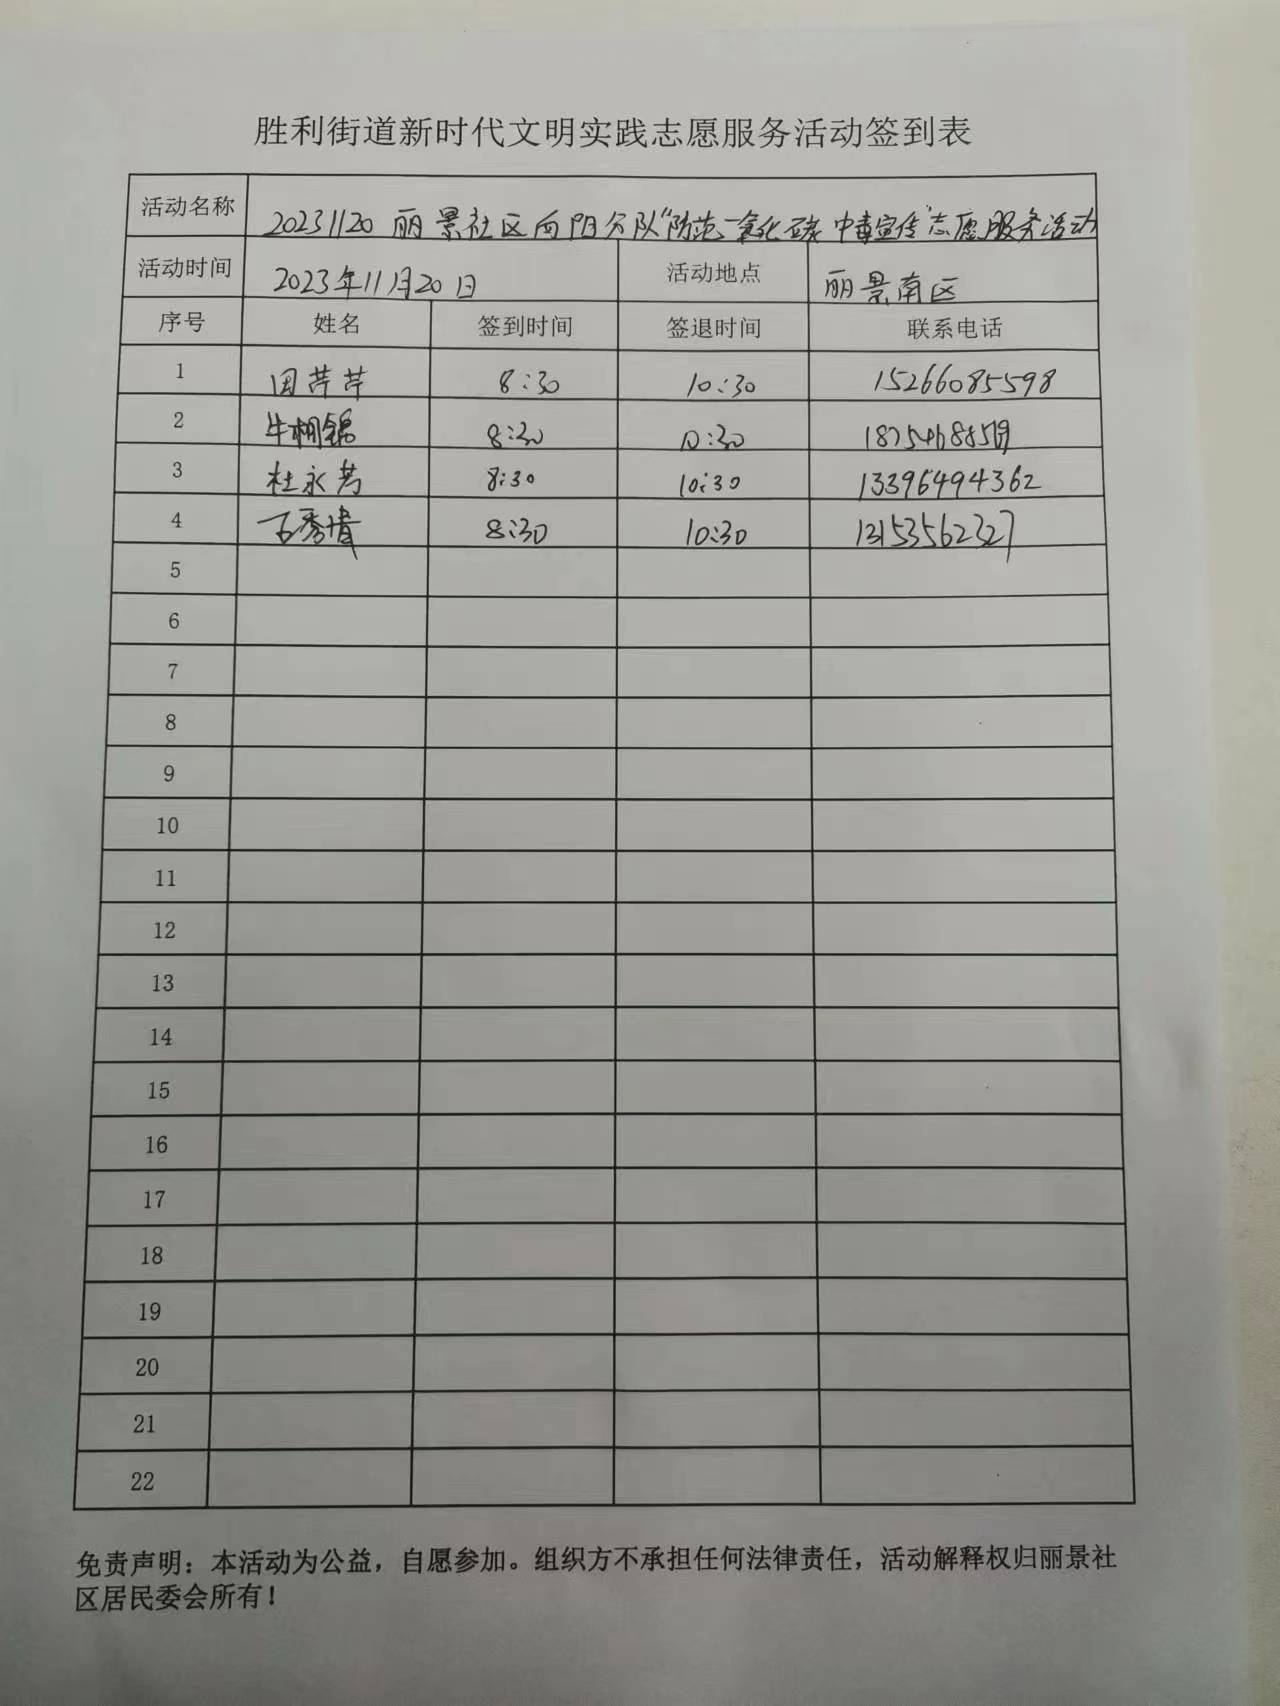 胜利街道新时代文明实践志愿服务活动签到表
活动名称 20231120 丽景社区向阳分队"防范一氧化碳中毒宣传"志愿服务活动
活动时间 2023年11月20日 活动地点 丽景南区
序号 姓名 签到时间 签退时间 联系电话
1 田芹芹 8:30 10:30 15266085598
2 8:30 10:30
3 杜永芳 8:30 10:30 13396494362
4 8:30 10:30 13153562327
5
6
7
8
9
10
11
12
13
14
15
16
17
18
19
20
21
22
免责声明：本活动为公益，自愿参加。组织方不承担任何法律责任，活动解释权归丽景社
区居民委会所有！